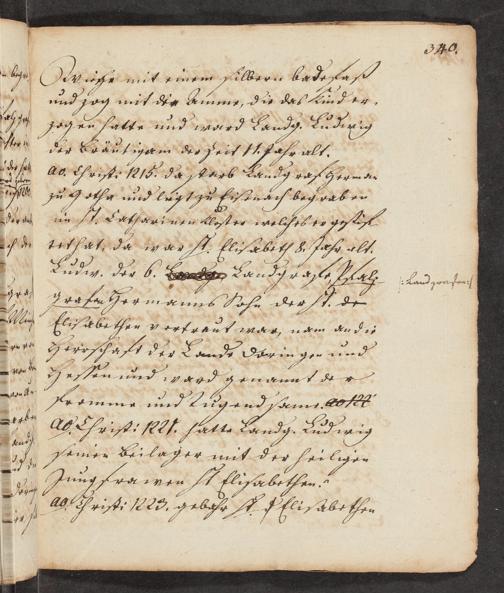 340.
Wiege mit einem silbern badefaß
und zog mit der Amme, die das Kind er-
zogen hatte und ward Landg. Ludwig
der Bräutigam der Zeit 11. Jahr alt.
ao. Christi 1215. da starb Landgraf Herman
zu Gotha und liegt zu Eisenach begraben
im St. Catharinen Kloster welches er gestift
tet hat. da war St. Elisabeth 8. Jahr alt.
Ludw. der 6. Landgrafe Pfalz-
|: Landgrafen :|
grafen Hermanns Sohn der St.
Elisabethen vertraut war, nam an die
Herrschaft der Lande Döringen und
Hessen und ward genannt der
fromme und Tugendsame. ao 122
AO. Christi: 1221. hatte Landg. Ludwig
seinen Beilager mit der heiligen
Jungfrawen St Elisabethen.
ao. Christi: 1223. gebahr St. Elisabethen